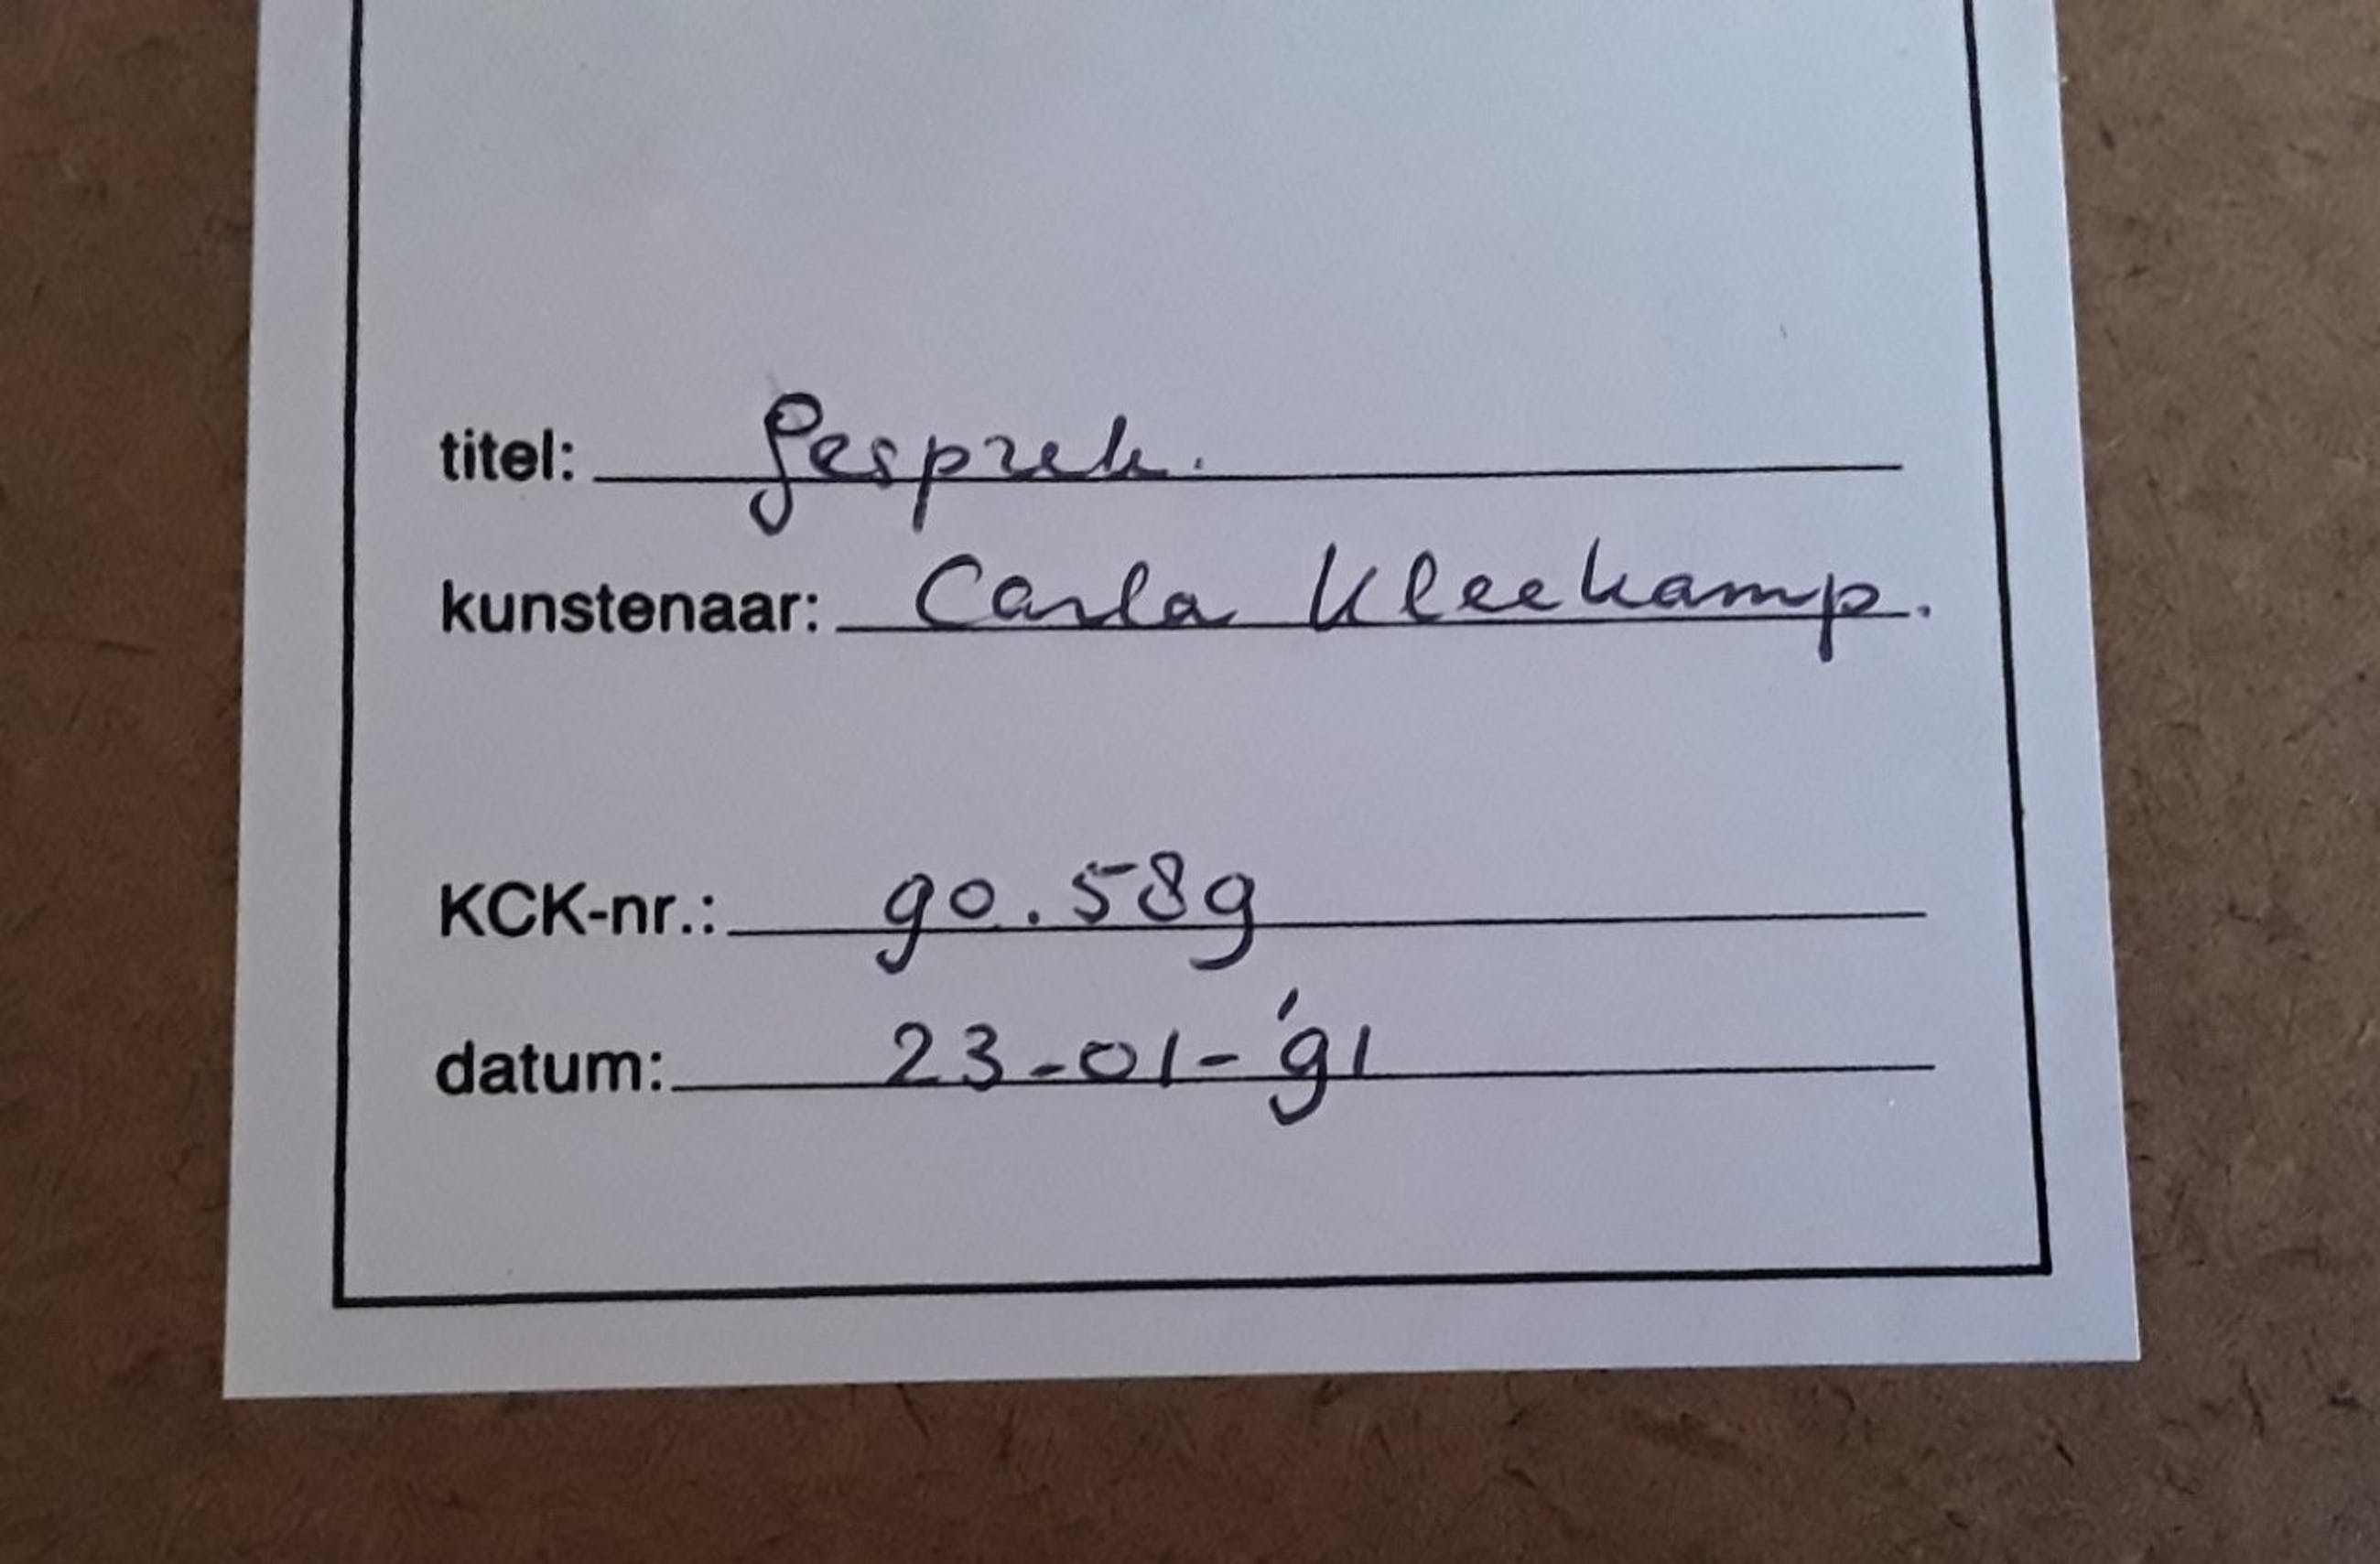 titel: Gesprek.
kunstenaar: Carla Kleekamp.
KCK-nr.: 90.589
datum: 23-01-'91